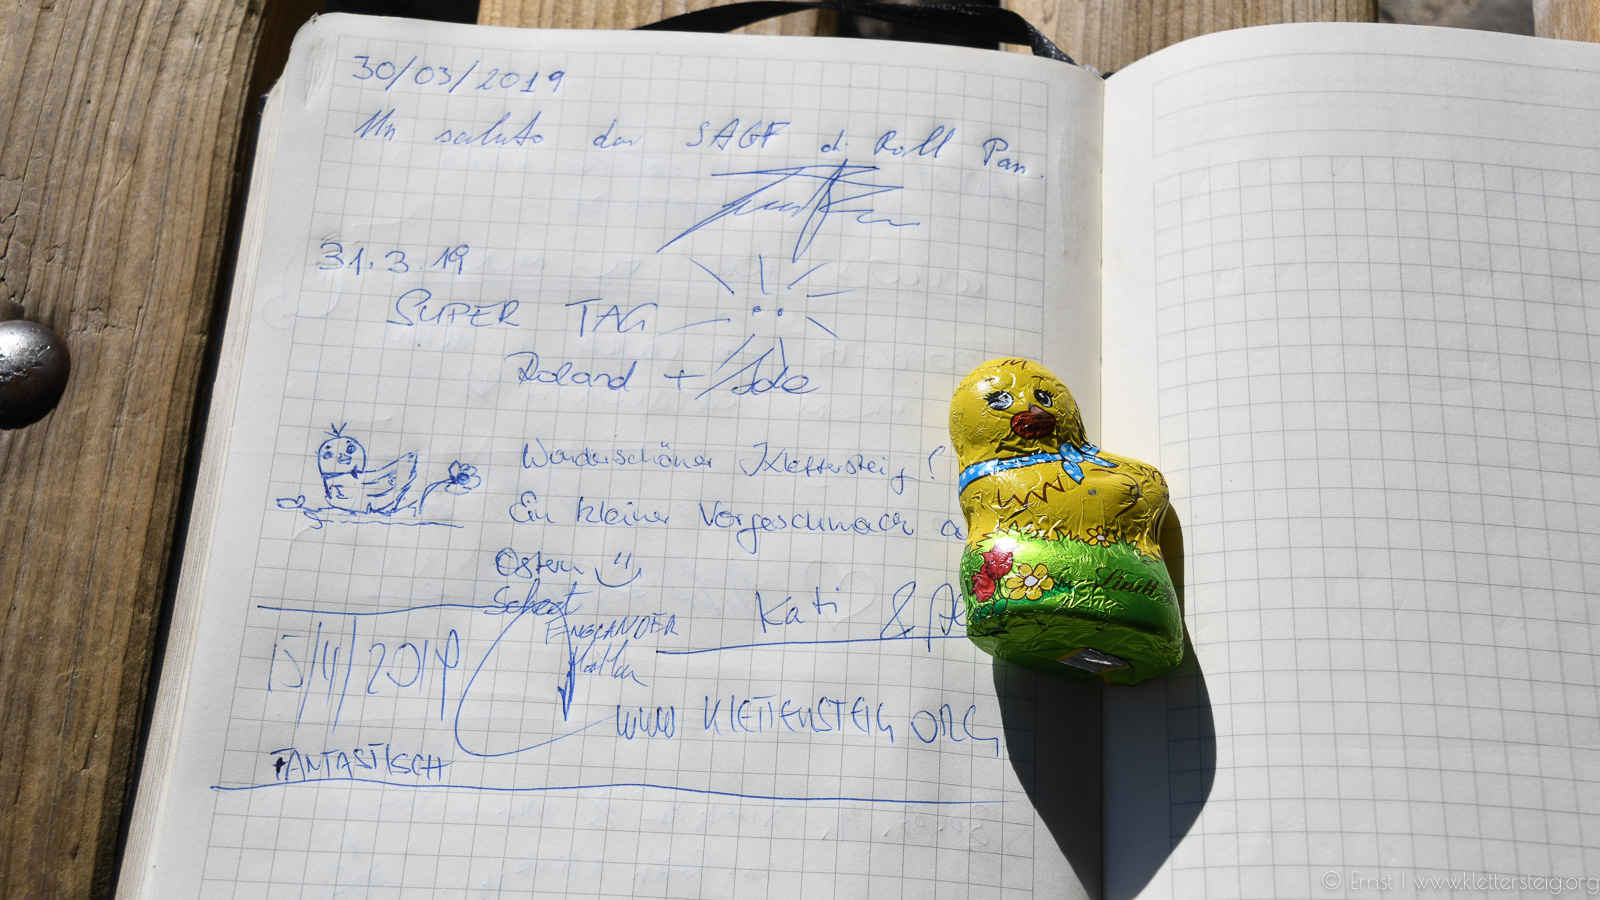 30/03/2019
Un saluto dai SAGF di Roll Pan.
31.3.19
SUPER TAG
Roland +
Wunderschöner Klettersteig!
Ein kleiner Vorgeschmack a
Ostern
Kati &
ENGLANDER
15/4/2019
www KLETTERSTEIG ORG
FANTASTISCH
Lindt
© Ernst | www.klettersteig.org